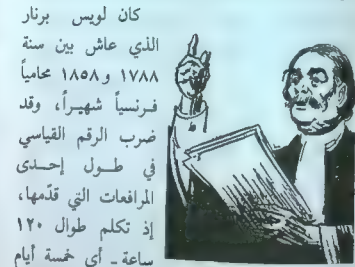 كان لويس برنار
الذي عاش بين سنة
١٧٨٨ و ١٨٥٨ محامياً
فرنسياً شهيراً، وقد
ضرب الرقم القياسي
في طول إحدى
المرافعات التي قدّمها،
إذ تكلم طوال ١٢٠
ساعة - أي خمسة أيام